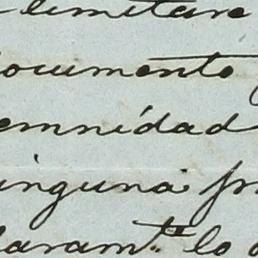 limitare
documento
emnidad
ninguna pr
laramte lo